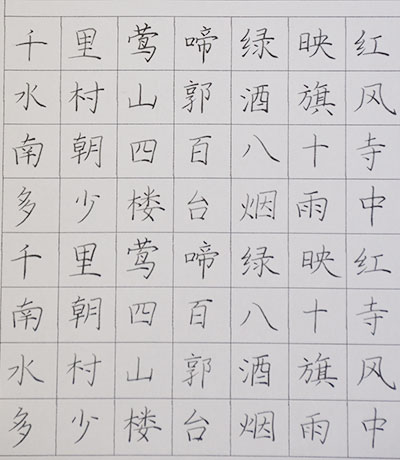 千里莺啼绿映红
水村山郭酒旗风
南朝四百八十寺
多少楼台烟雨中
千里莺啼绿映红
南朝四百八十寺
水村山郭酒旗风
多少楼台烟雨中